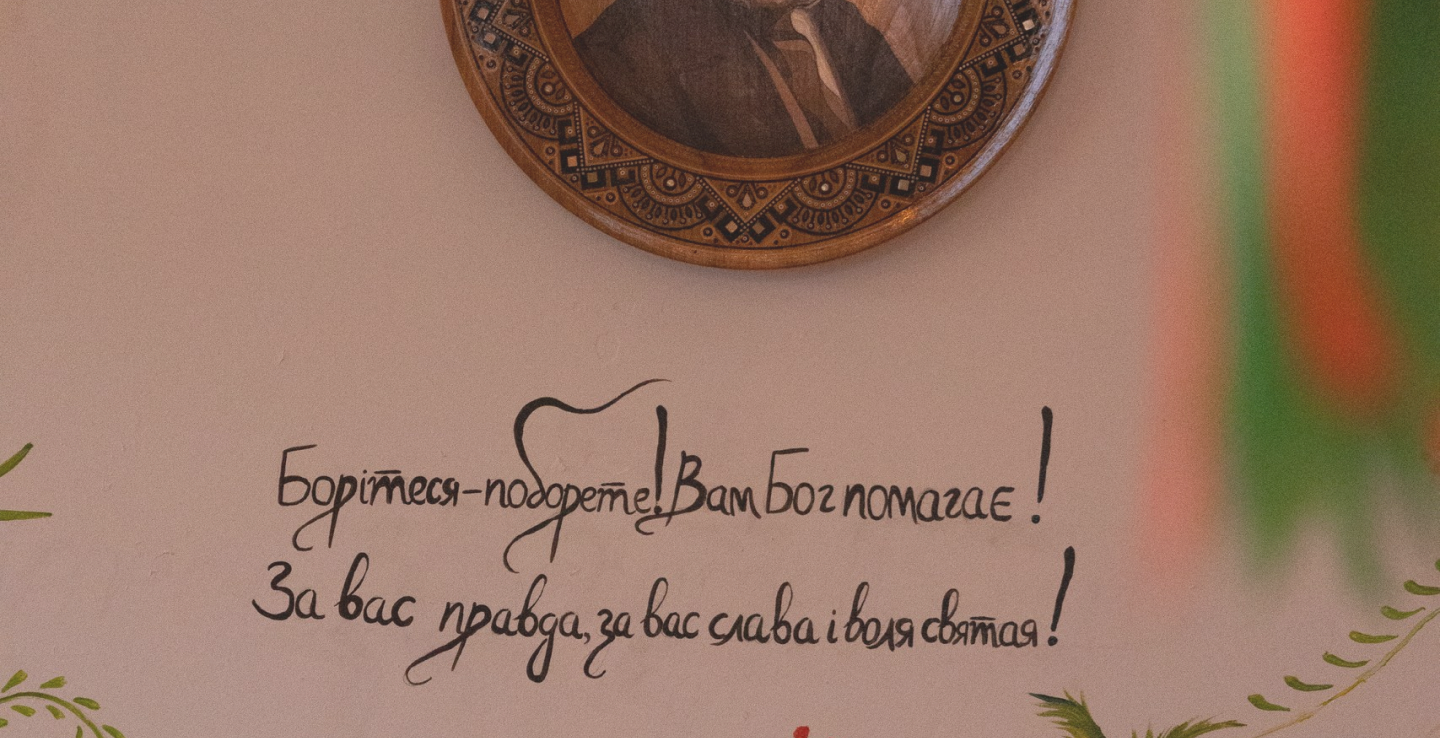 Борітеся-поборете! Вам Бог помагає!
За вас правда, за вас слава і воля святая!